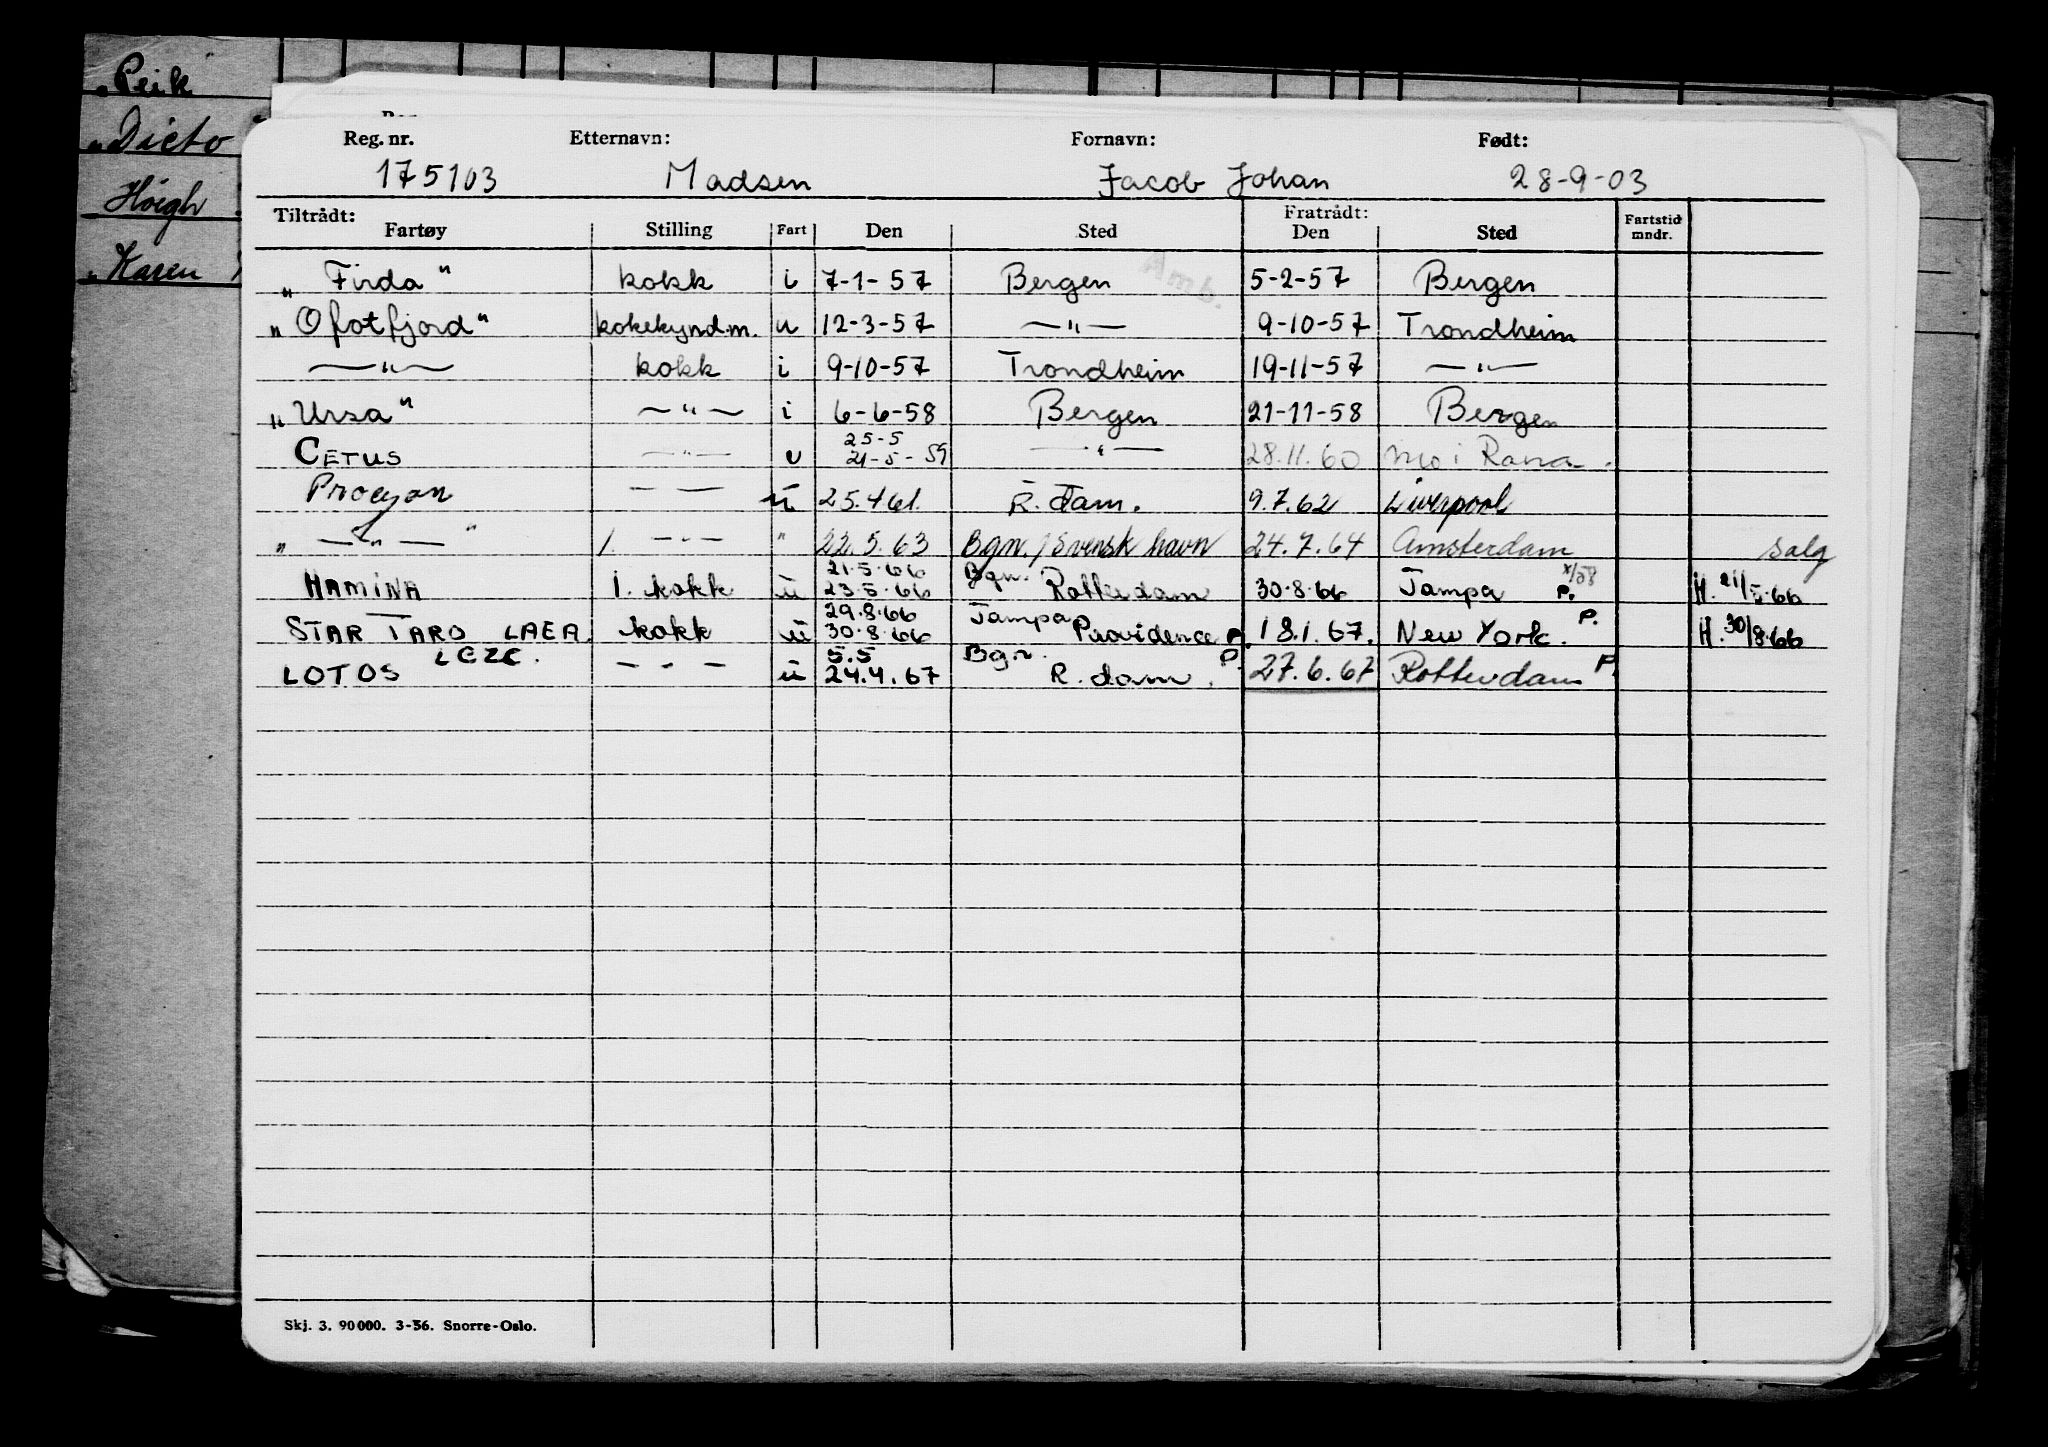 „ Peik
„ Dicto
Höegh
„ Karen
Reg. nr. Etternavn: Fornavn: Født:
175103 Madsen Jacob Johan 28-9-03
Tiltrådt: Fratrådt:
Fartøy Stilling Fart Den Sted Den Sted Fartstid mndr.
Amb.
„ Firda " kokk i 7-1-57 Bergen 5-2-57 Bergen
„ Ofotfjord " kokekynd.m. u 12-3-57 —"— 9-10-57 Trondheim
—"— kokk i 9-10-57 Trondheim 19-11-57 —"—
„ Ursa " —"— i 6-6-58 Bergen 21-11-58 Bergen
25-5
CETUS —"— u 21-5-59 —"— 28.11.60 Mo i Rana.
Procyon — — u 25.4.61. R.dam. 9.7.62 Liverpool
„ —"— " 1. —"— " 22.5.63 Bgn./Svensk havn 24.7.64 Amsterdam salg
21.5.66 Bgn. x/58
HAMINA 1. kokk u 23.5.66 Rotterdam 30.8.66 Tampa P. H. 21/5.66
29.8.66 Tampa P.
STAR TARO LAEA. kokk u 30.8.66 Providence P. 18.1.67. New York. H. 30/8.66
LEZE. 5.5 Bgn. P.
LOTOS —"— u 24.4.67 R.dam. 27.6.67 Rotterdam P.
Skj. 3. 90000. 3-56. Snorre-Oslo.